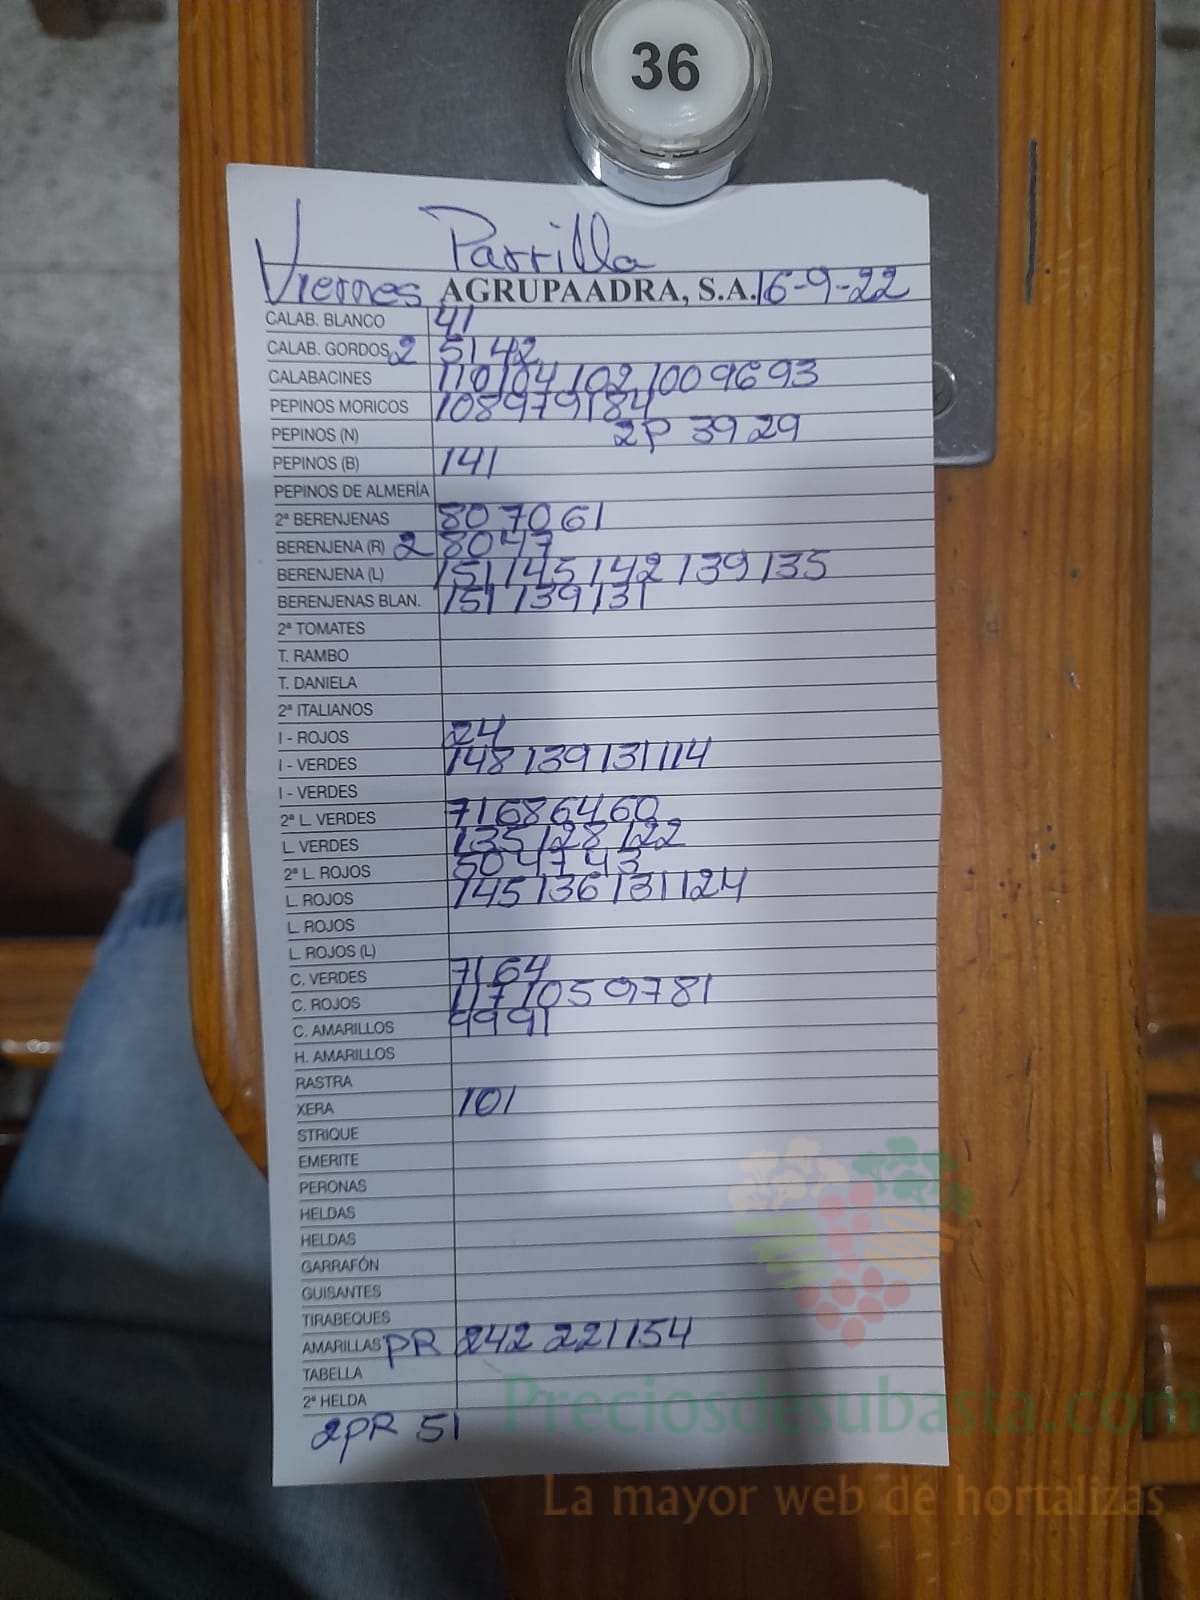 36
Parrilla
Viernes AGRUPAADRA, S.A. 16-9-22
CALAB. BLANCO 41
CALAB. GORDOS 2 51 42
CALABACINES 110 104 102 100 96 93
PEPINOS MORICOS 108 97 91 84
PEPINOS (N) 2P 39 29
PEPINOS (B) 141
PEPINOS DE ALMERÍA
2ª BERENJENAS 80 70 61
BERENJENA (R) 2 80 47
BERENJENA (L) 151 145 142 139 135
BERENJENAS BLAN. 151 139 131
2ª TOMATES
T. RAMBO
T. DANIELA
2ª ITALIANOS
I - ROJOS 24
I - VERDES 148 139 131 114
I - VERDES
2ª L. VERDES 71 68 64 60
L. VERDES 135 128 122
2ª L. ROJOS 50 47 43
L. ROJOS 145 136 131 124
L. ROJOS
L. ROJOS (L)
C. VERDES 71 64
C. ROJOS 117 105 97 81
C. AMARILLOS 99 91
H. AMARILLOS
RASTRA
XERA 101
STRIQUE
EMERITE
PERONAS
HELDAS
HELDAS
GARRAFÓN
GUISANTES
TIRABEQUES
AMARILLAS PR 242 221 154
TABELLA
2ª HELDA
2PR 51
Preciosdesubasta.com
La mayor web de hortalizas